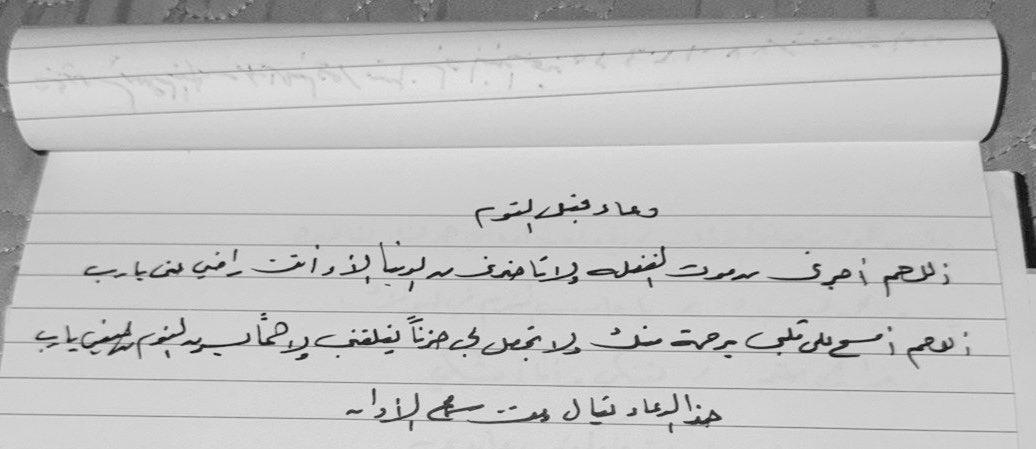 دعاء قبل النوم
اللهم أجرني من موت الغفله ولا تأخذني من الدنيا إلا وأنت راضي عني يا رب
اللهم أمسح على قلبي برحمة منك ولا تجعل لي حزناً يقلقني ولا هماً يسرق النوم من عيني يا رب
هذا الدعاء يقال وقت سماع الأذان